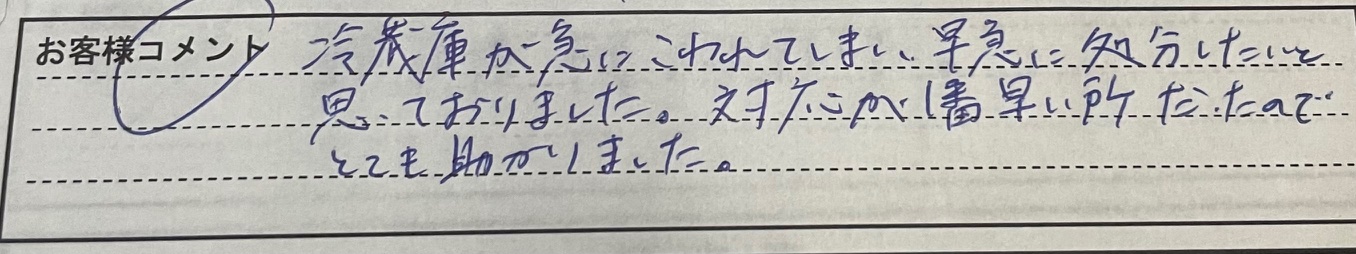 お客様コメント 冷蔵庫が急にこわれてしまい、早急に処分したいと
思っておりました。対応が1番早い所だったので
とても助かりました。